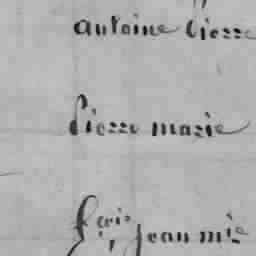 antoine pierre
Pierre marie
fçois jean mie